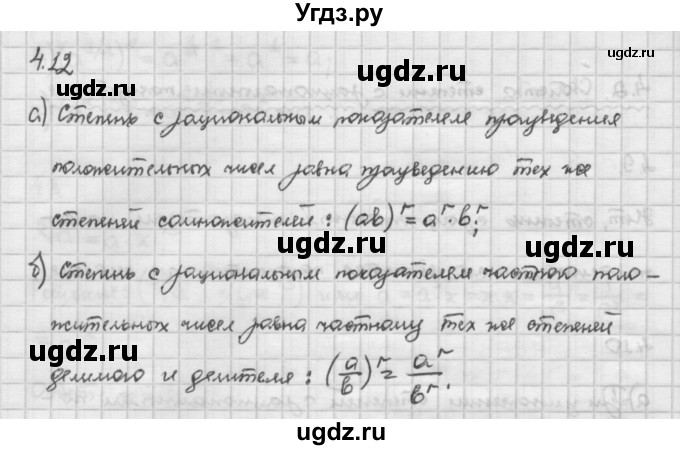 Угдз.ру
4.12
ugdz.ru ugdz.ru
а) Степень с рациональным показателем произведения
ugdz.ru ugdz.ru
положительных чисел равна произведению тех же
степеней сомножителей: (ab)^r = a^r · b^r;
ugdz.ru ugdz.ru
б) Степень с рациональным показателем частного поло-
жительных чисел равна частному тех же степеней
ugdz.ru ugdz.ru
делимого и делителя: (a/b)^r = a^r/b^r.
ugdz.ru